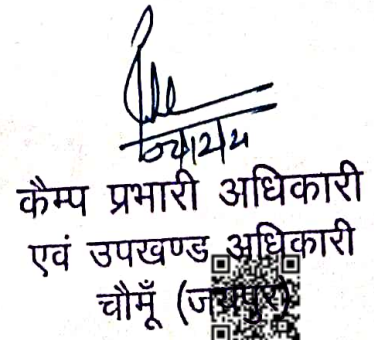 कैम्प प्रभारी अधिकारी
एवं उपखण्ड अधिकारी
चौमूँ (जयपुर)